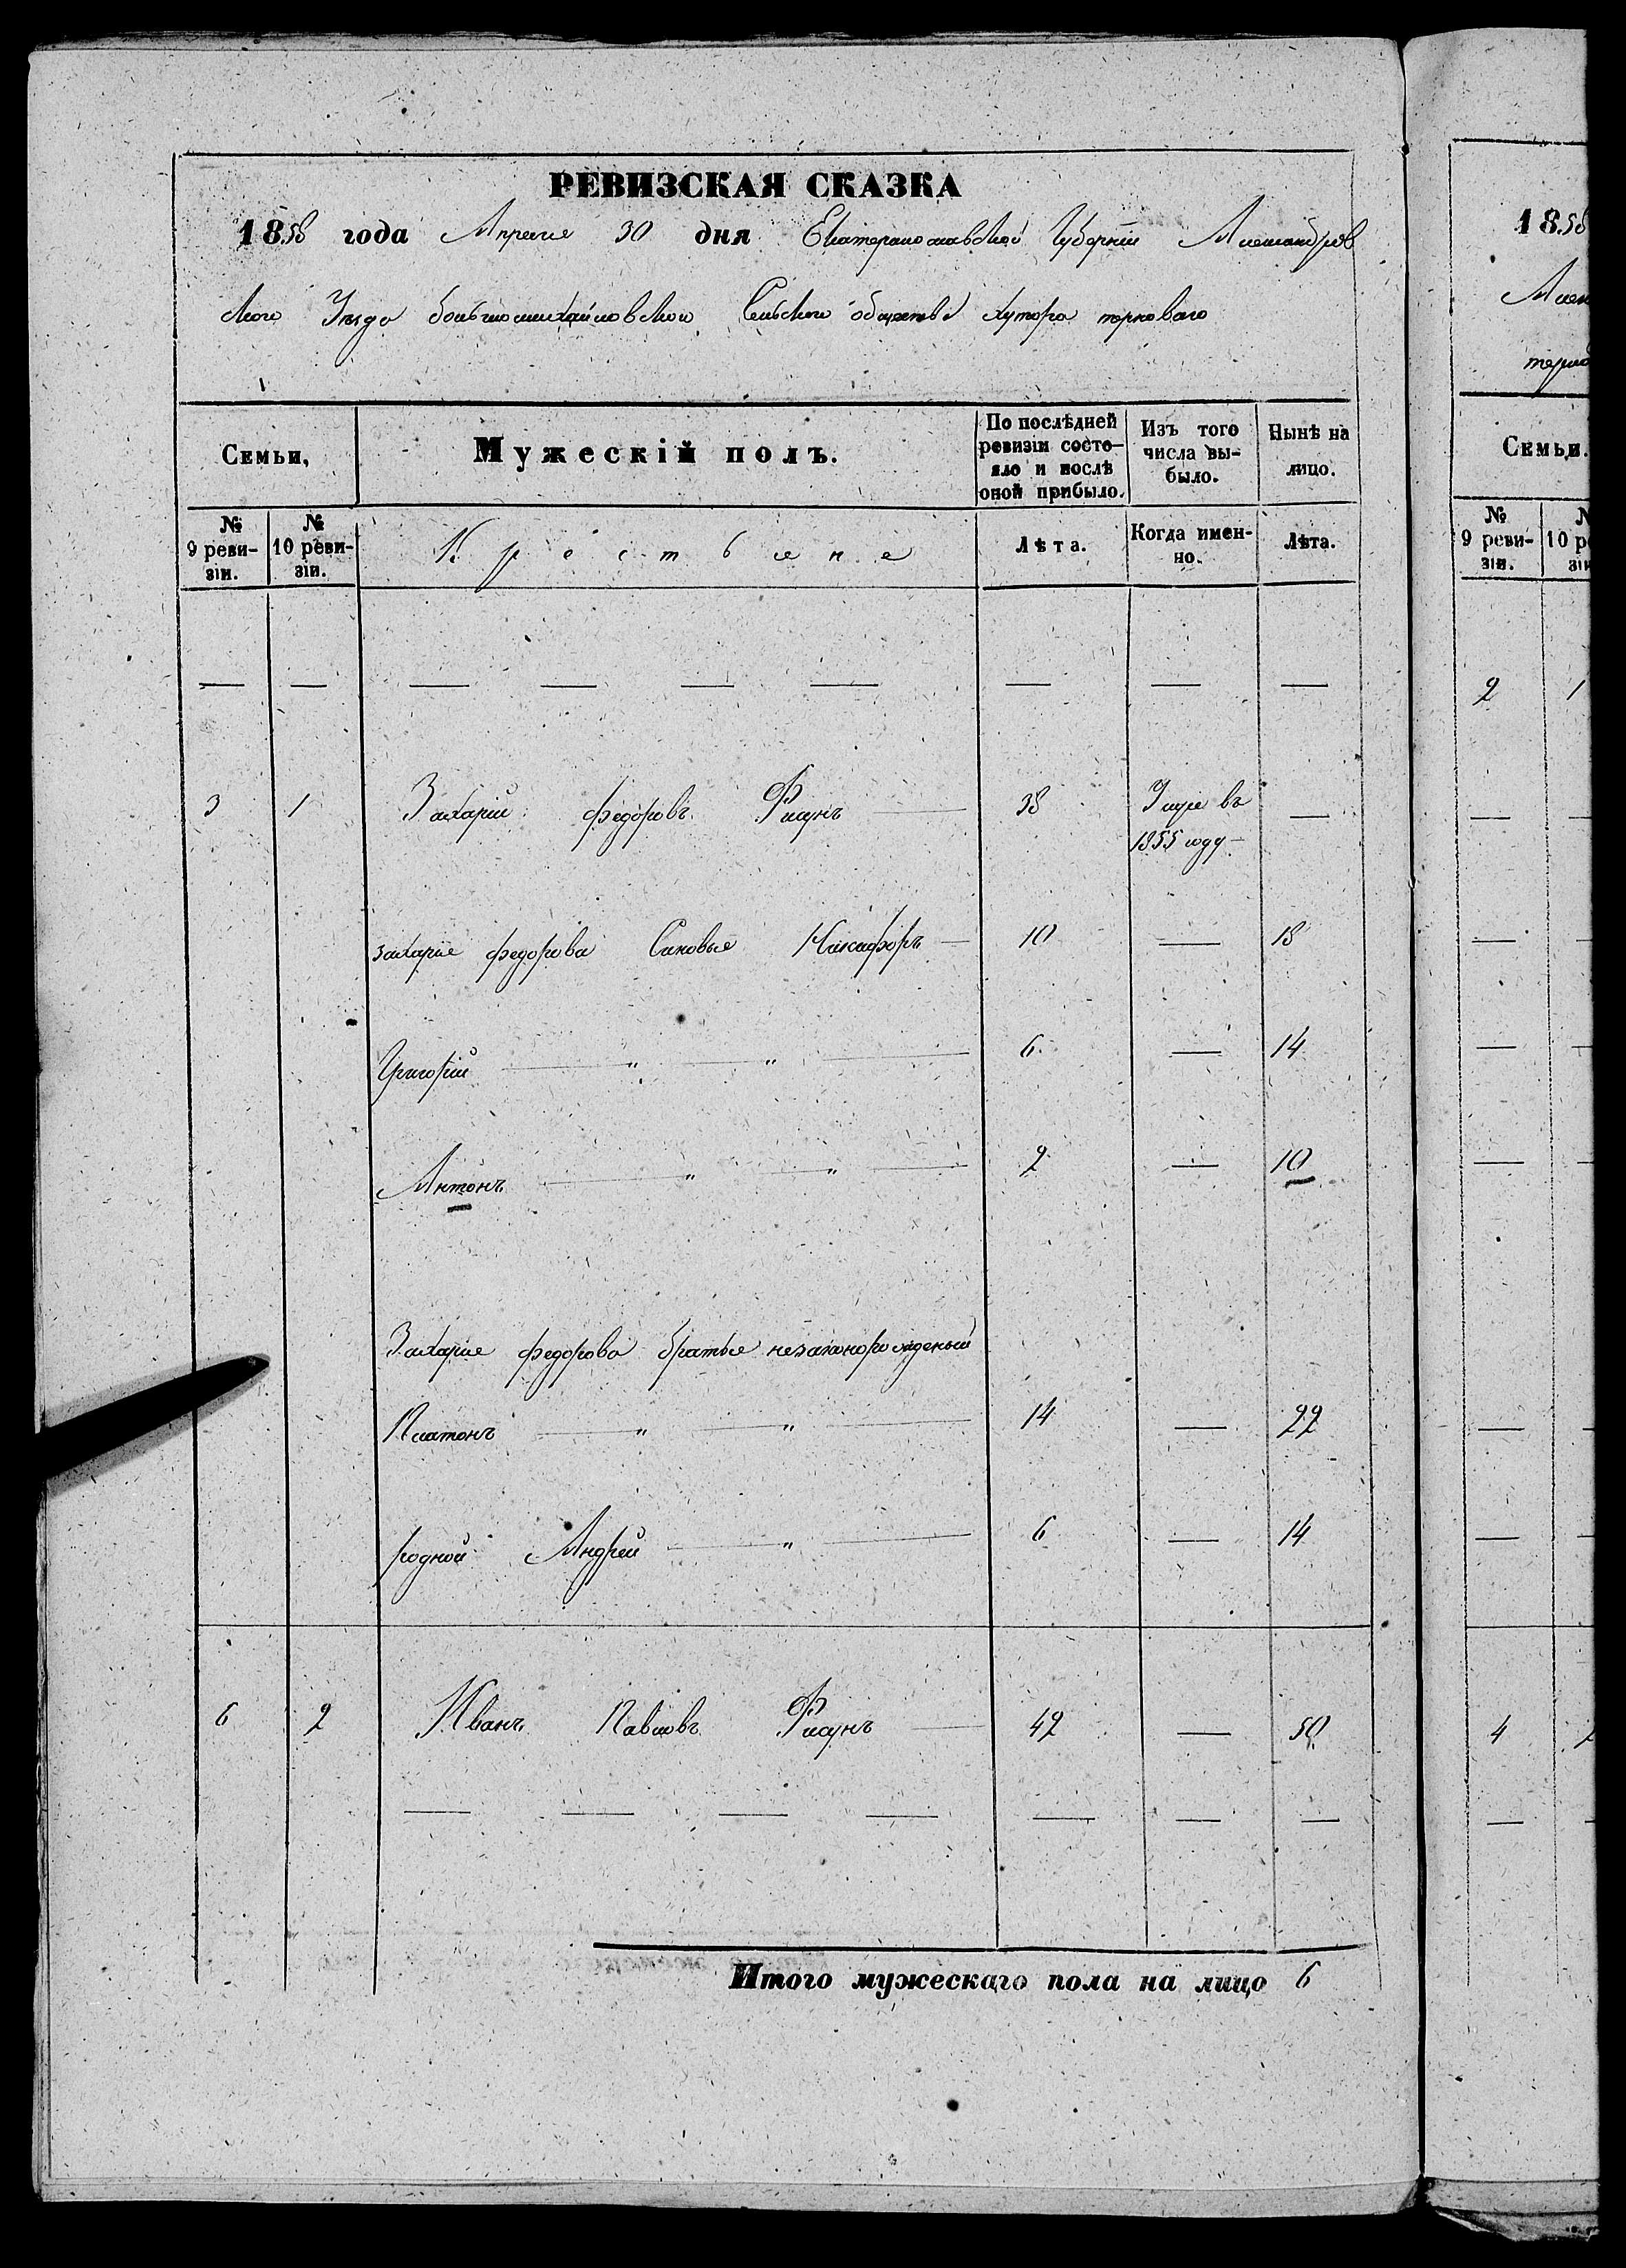 РЕВИЗСКАЯ СКАЗКА
1858 года Апреля 30 дня Екатеринославской Губернии Александров
ского Уезда большомихайловского Сельского общества хутора терноваго
Семьи,
Мужескій полъ.
По послѣдней ревизіи состо-
яло и послѣ
оной прибыло.
Изъ того
числа вы-
было.
Нынѣ на
лицо.
№
9 реви-
зіи.
№
10 реви-
зіи.
Крестьяне
Лѣта.
Когда имен-
но.
Лѣта.
— — — — — — — — —
3 1 Захарий федоровъ Фисунъ — 38 Умре въ —
1855 году —
захарие федорова Синовье Никифоръ — 10 — 18
Григорій — " — " — 6 — 14
Антонъ — " — " — 2 — 10
Захарие федорова братье незаконорожденый
Платонъ — " — " — 14 — 22
родной Андрей — " — 6 — 14
6 2 Иванъ Павловъ Фисунъ — 42 — 50
— — — — — — —
Итого мужескаго пола на лицо 6
1858
Семьи.
№
9 реви-
зіи.
2 1
— —
— —
— —
— —
— —
— —
4
— —